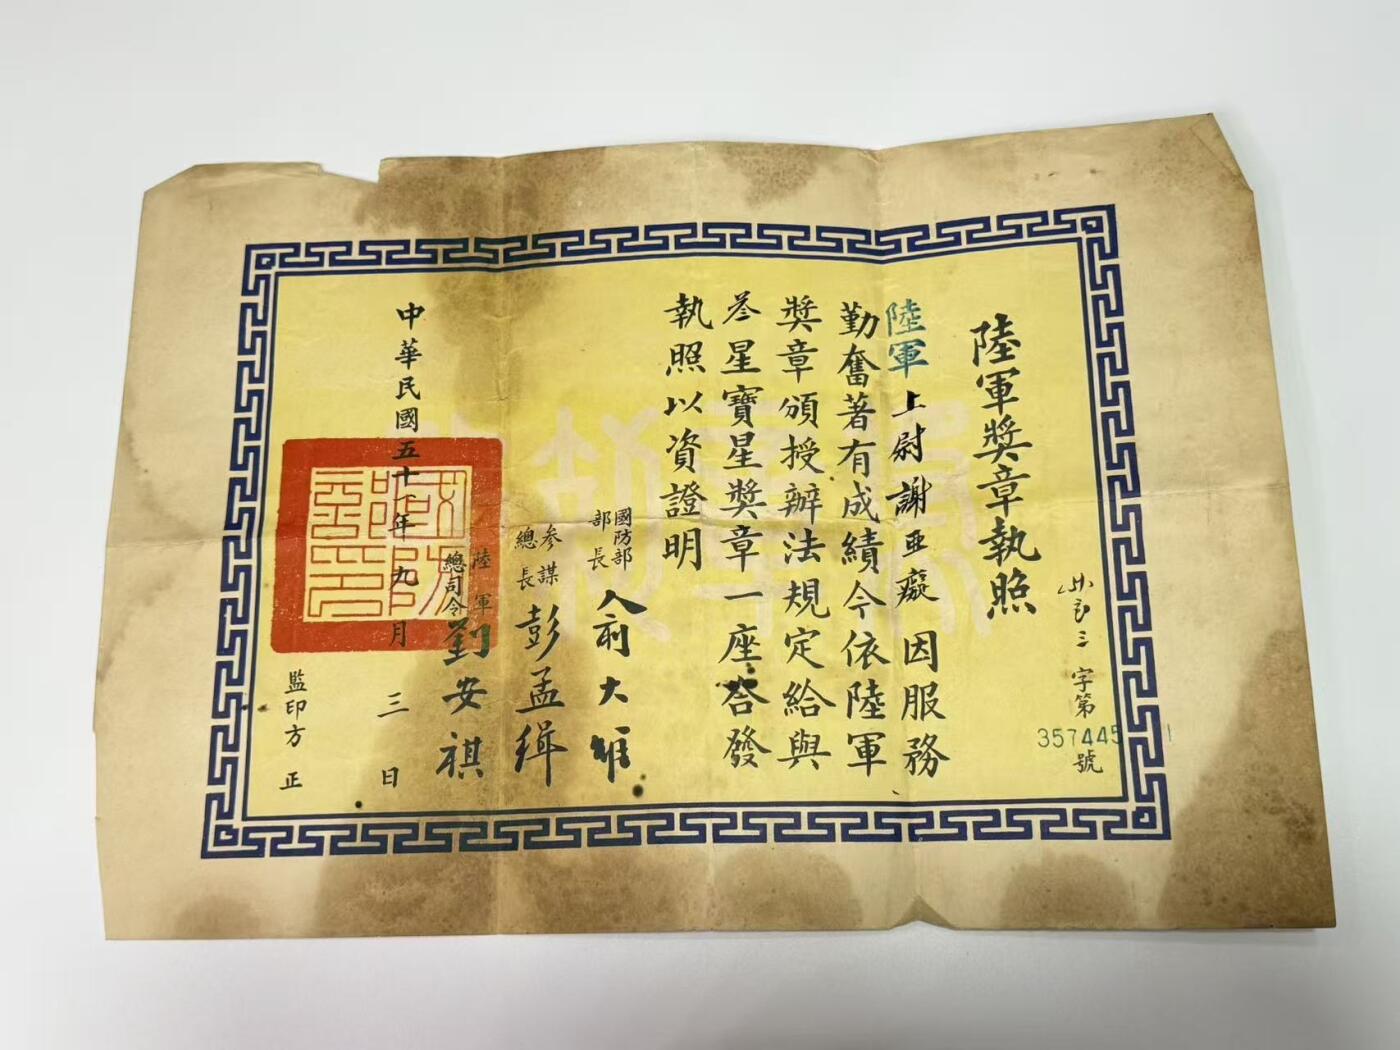 陸軍獎章執照
三字第357445號
陸軍上尉謝亞癡因服務
勤奮著有成績今依陸軍
獎章頒授辦法規定給與
叁星寶星獎章一座合發
執照以資證明
國防部部長俞大維
参謀總長彭孟緝
陸軍總司令劉安祺
中華民國五十年九月三日
監印方正
國防部印